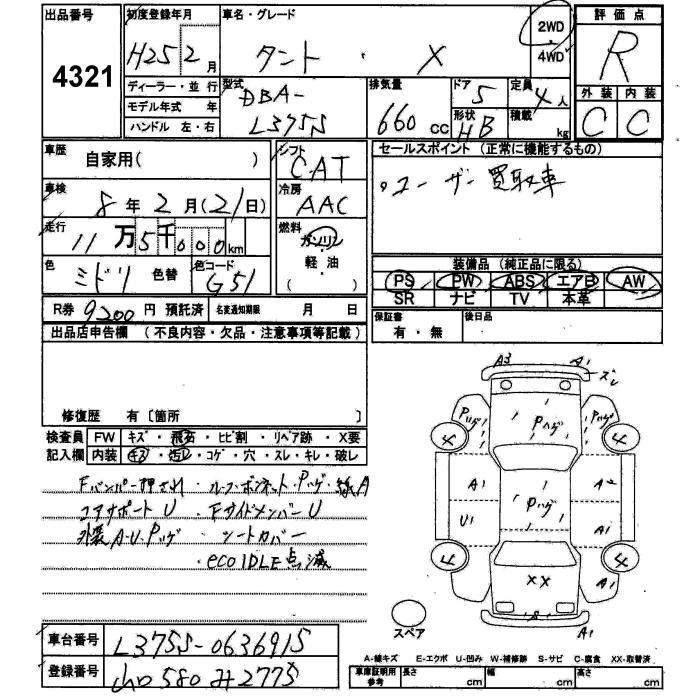 出品番号
4321
初度登録年月
H25 2月
車名・グレード
タント ・ X
2WD
4WD
評価点
R
外装 内装
C C
ディーラー・並行
モデル年式 年
ハンドル 左・右
型式
DBA-
L375S
排気量
660 cc
ドア
5
形状
HB
定員
4人
積載
kg
車歴
自家用( )
車検
8年2月(21日)
走行
11万5千000km
色
ミドリ 色替
色コード
G51
シフト
CAT
冷房
AAC
燃料
ガソリン
軽油
( )
セールスポイント (正常に機能するもの)
・ユーザー買取車
装備品 (純正品に限る)
PS PW ABS エアB AW
SR ナビ TV 本革
R券 9200円 預託済 名変通知期限 月 日
保証書
有・無
後日品
出品店申告欄 (不良内容・欠品・注意事項等記載)
修復歴 有〔箇所 〕
検査員
記入欄
FW キズ・飛石・ヒビ割・リペア跡・X要
内装 キズ・汚レ・コゲ・穴・スレ・キレ・破レ
Fバンパー押され ・ルーフ・ボンネット・Pハゲ・線A
コアサポートU ・FサイドメンバーU
外装A・U・Pハゲ ・シートカバー
・eco IDLE点滅
A3 A1
ズレ
Pハゲ Pハゲ Pハゲ
4 4
A1 Pハゲ A2
U1 A1
4 4
XX A1
S
A1
スペア
車台番号 L375S-0636915
登録番号 山口580み2775
A-線キズ E-エクボ U-凹み W-補修跡 S-サビ C-腐食 XX-取替済
車庫証明用
参考
長さ cm 幅 cm 高さ cm